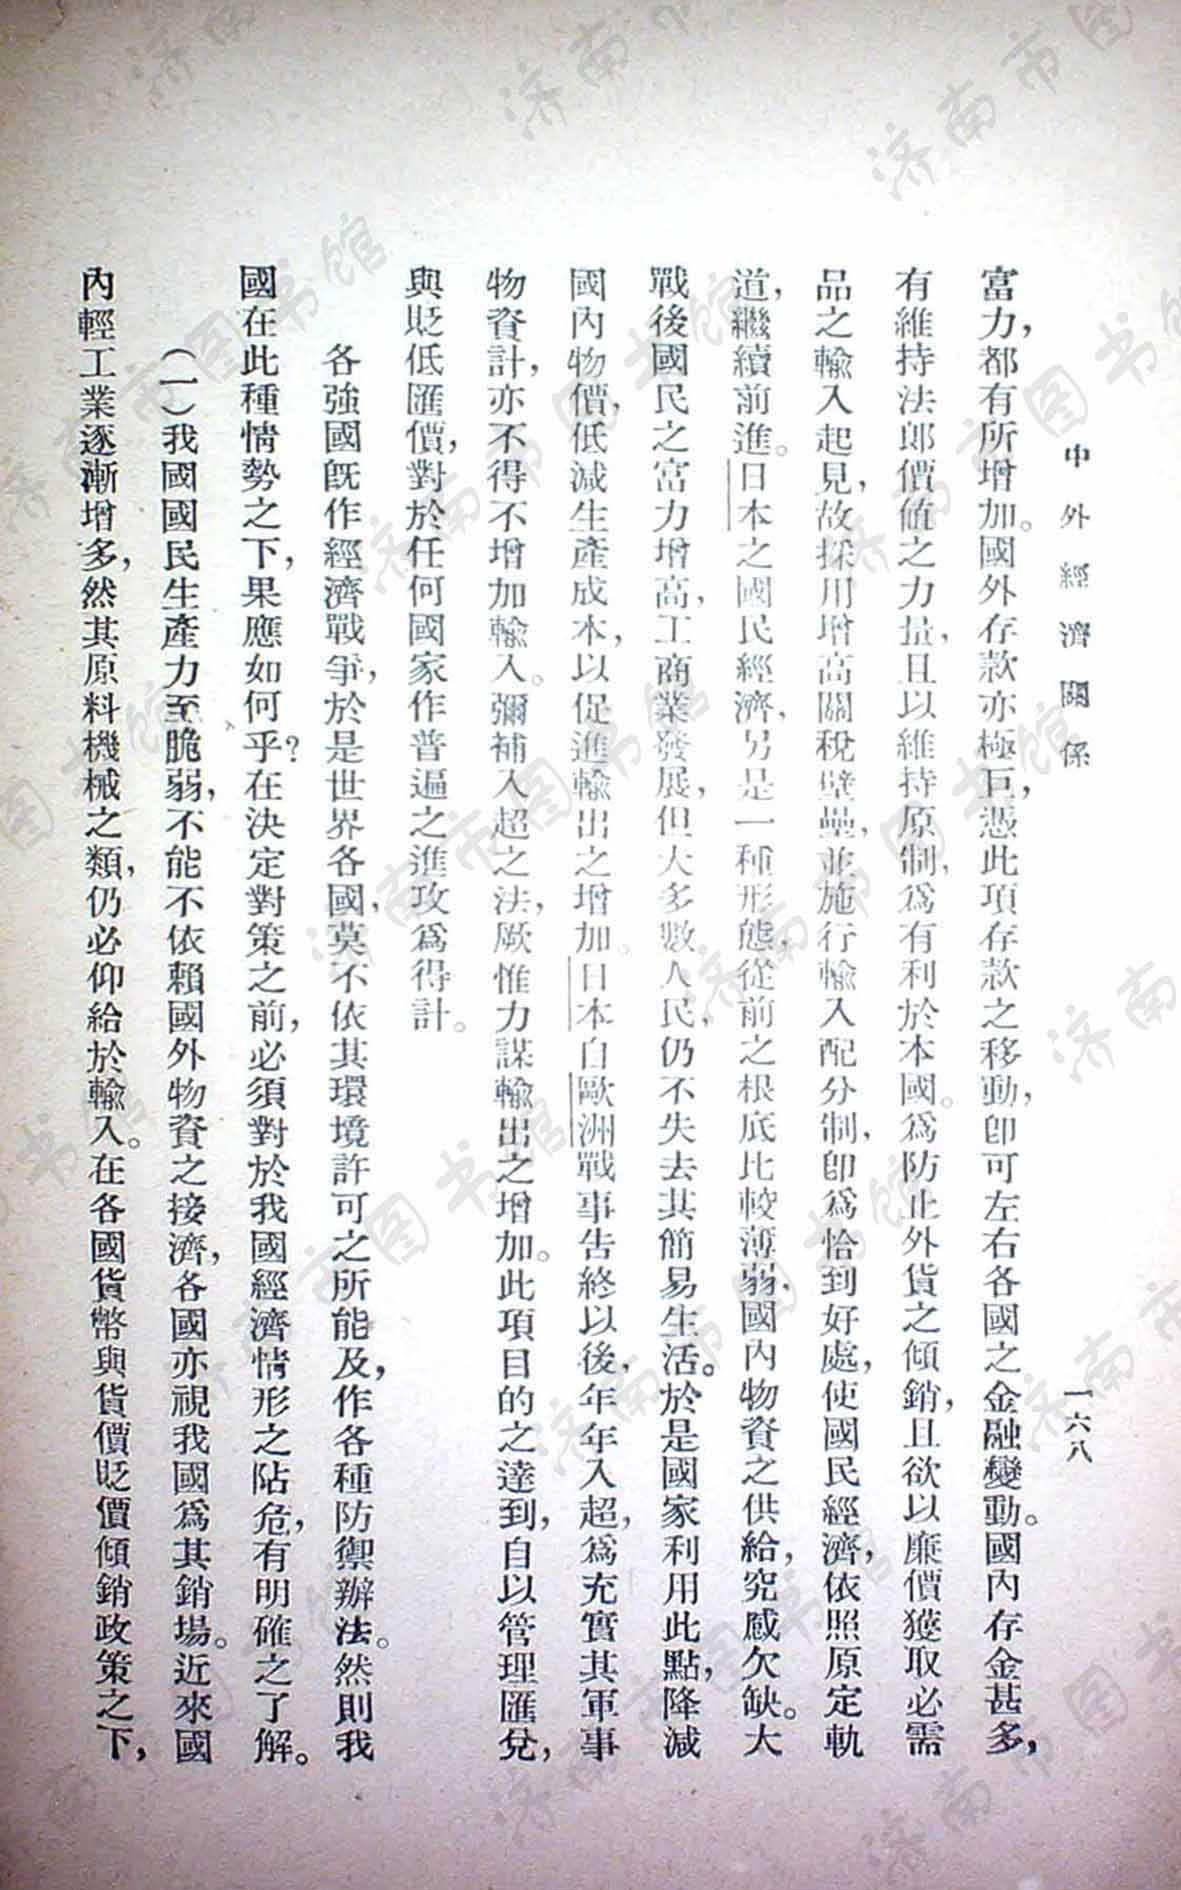 中外經濟關係
一六八
富力，都有所增加。國外存款亦極巨，憑此項存款之移動，卽可左右各國之金融變動。國內存金甚多，
有維持法郎價值之力量，且以維持原制，爲有利於本國。爲防止外貨之傾銷，且欲以廉價獲取必需
品之輸入起見，故採用增高關稅壁壘，並施行輸入配分制，卽爲恰到好處，使國民經濟，依照原定軌
道，繼續前進。日本之國民經濟，另是一種形態，從前之根底比較薄弱，國內物資之供給，究感欠缺。大
戰後國民之富力增高，工商業發展，但大多數人民，仍不失去其簡易生活。於是國家利用此點，降減
國內物價，低減生產成本，以促進輸出之增加。日本自歐洲戰事告終以後，年年入超，爲充實其軍事
物資計，亦不得不增加輸入。彌補入超之法，厥惟力謀輸出之增加。此項目的之達到，自以管理匯兌，
與貶低匯價，對於任何國家作普遍之進攻爲得計。
各強國旣作經濟戰爭，於是世界各國，莫不依其環境許可之所能及，作各種防禦辦法。然則我
國在此種情勢之下，果應如何乎？在決定對策之前，必須對於我國經濟情形之阽危，有明確之了解。
（一）我國國民生產力至脆弱，不能不依賴國外物資之接濟，各國亦視我國爲其銷場。近來國
內輕工業逐漸增多，然其原料機械之類，仍必仰給於輸入。在各國貨幣與貨價貶價傾銷政策之下，
济南市图书馆